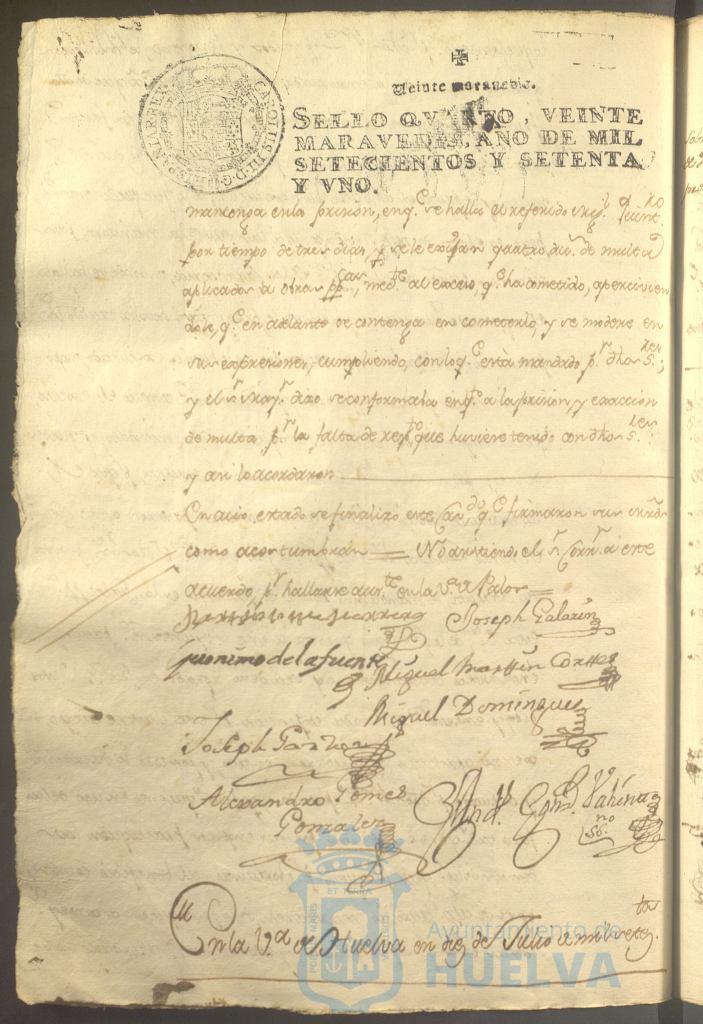 Veinte maravedis.
SELLO QVARTO, VEINTE
MARAVEDIS, AÑO DE MIL
SETECIENTOS Y SETENTA
Y VNO.
CAROLUS III D G HISPANIAR REX
mantenga en la prision, en q.e se halla el referido
por tiempo de tres dias, y se le exijan quatro du.s de multa
aplicados a obras p.cas, med.te al exceso, q.e ha cometido, apercivien
dole, q.e en adelante se contenga en cometerlo, y se modere en
sus expresiones, cumpliendo, con lo q.e está mandado p.r dhos S.res;
y el s.r dixo se conformaba en q.to a la prision, y exaccion
de multa p.r la falta de resp.to que huviere tenido con dhos S.res:
y asi lo acordaron
En cuio estado se finalizó este Cav.do q.e firmaron sus mrds
como acostumbran = No asistiendo el s.r Corr.r a este
acuerdo, p.r hallarse aus.te en la V.a de Palos =
Joseph Galarin
Geronimo de la fuente
Miguel Martin Corttes
Miguel Dominguez
Joseph
Alexandro Gomez
Gonzalez
ss.no
En la V.a de Huelva en diez de Julio de mil setez.tos
Ayuntamiento de
HUELVA